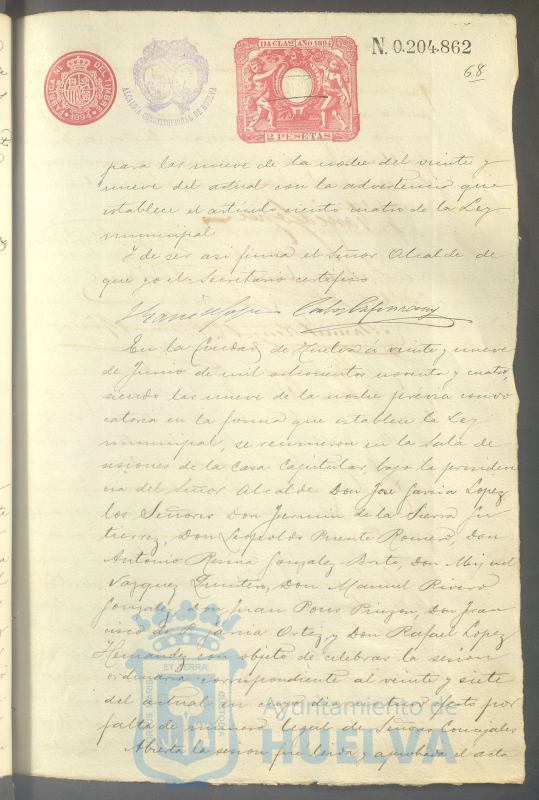 FABRICA Nal DEL TIMBRE
1894
ALCALDIA CONSTITUCIONAL DE HUELVA
11A CLASE AÑO 1894
2 PESETAS
N. 0.204.862
68
para las nueve de la noche del veinte y
nueve del actual con la advertencia que
establece el artículo ciento cuatro de la Ley
municipal
Y de ser asi firma el Señor Alcalde de
que yo el Secretario certifico.
En la Ciudad de Huelva á veinte y nueve
de Junio de mil ochocientos noventa y cuatro
siendo las nueve de la noche previa convo
catoria en la forma que establece la Ley
municipal, se reunieron en la Sala de
sesiones de la Casa Capitular, bajo la presiden
cia del Señor Alcalde Don José Garcia Lopez
los Señores Don Fermin de la Sierra Gu
tierrez, Don Leopoldo Puente Romero, Don
Antonio Reina Gonzalez Brito, Don Miguel
Vazquez Quintero, Don Manuel Rivero
Gonzalez, don Juan Pons Pinzon, Don Fran
cisco de P. Garcia Ortiz y Don Rafael Lopez
Hernandez con objeto de celebrar la sesion
ordinaria correspondiente al veinte y siete
del actual en cuyo dia no tuvo efecto por
falta de numero legal de Señores Concejales
Abierta la sesion fue leida y aprobada el acta
Ayuntamiento de
HUELVA